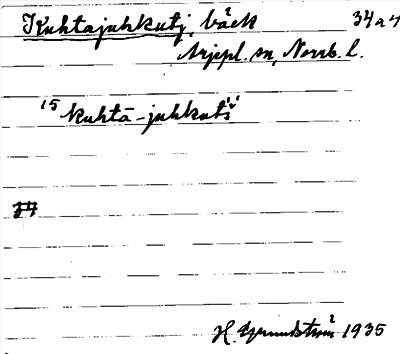 Kuhtajuhkutj, bäck 34 a 4
Arjepl. sn, Norrb. l.
15 kuhtā-juhkuťš́
H. Grundström 1935